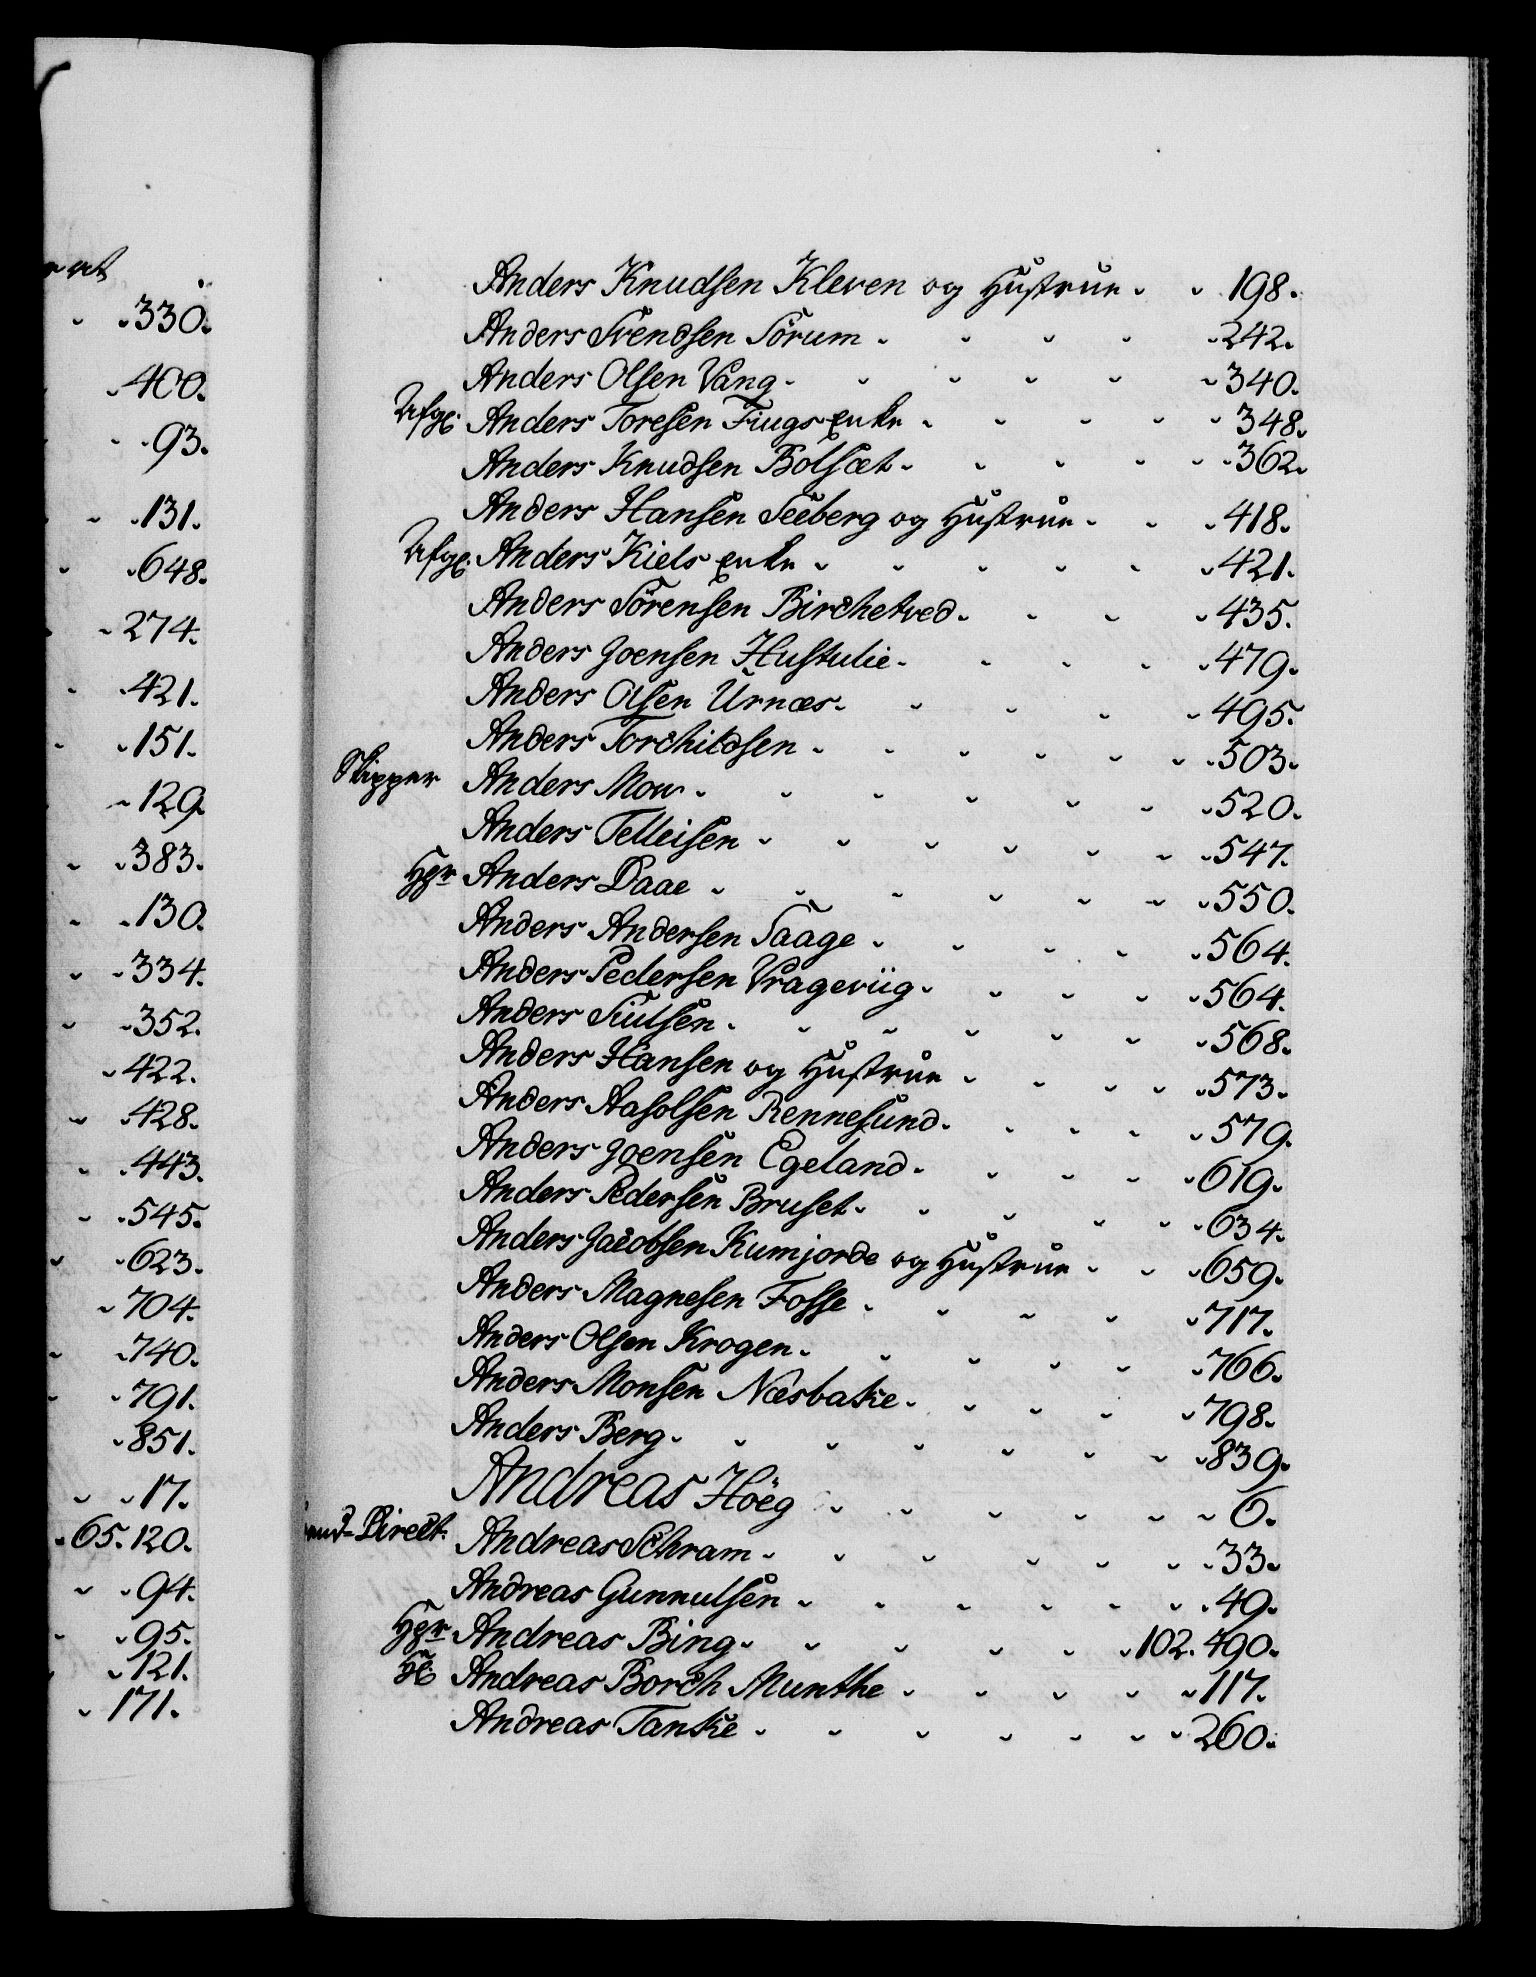 330.
400.
93.
131.
648.
274.
421.
151.
129.
383.
130.
334.
352.
422.
428.
443.
545.
623.
704.
740.
791.
851.
17.
65. 120.
94.
95.
121.
171.
Anders Knudsen Kleven og Hustrue 198.
Anders Svendsen Sörum 242.
Anders Olsen Vang 340.
Afg: Anders Toresen Fiugs Enke 348.
Anders Knudsen Bolsæt 362.
Anders Hansen Seeberg og Hustrue 418.
Afg: Anders Kiels Enke 421.
Anders Sörensen Birchetved 435.
Anders Joensen Hustulie 479.
Anders Olsen Urnæs 495.
Anders Torchildsen 503.
Skipper Anders Mow 520.
Anders Telleisen 547.
Hgr Anders Daae 550.
Anders Andersen Saage 564.
Anders Pedersen Vrageviig 564.
Anders Siulsen 568.
Anders Hansen og Hustrue 573.
Anders Aasolsen Rennesund 579.
Anders Joensen Egeland 619.
Anders Pedersen Bruset 634.
Anders Jacobsen Kumjorde og Hustrue 659.
Anders Magnesen Fosse 717.
Anders Olsen Krogen 766.
Anders Monsen Næsbakke 798.
Anders Berg 839.
Andreas Höeg 6.
Direct. Andreas Schram 33.
Andreas Gunnulsen 49.
Hgr Andreas Bing 102. 490.
Andreas Borch Munthe 117.
Andreas Tanke 260.